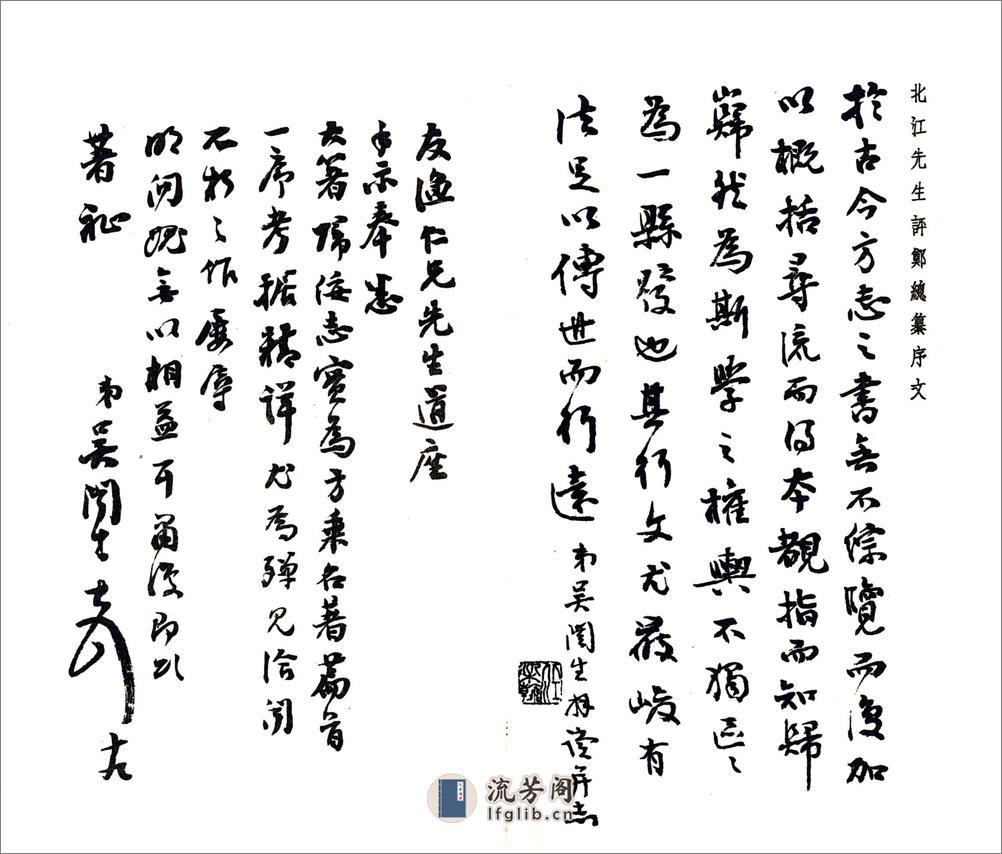 北江先生評鄭總纂序文
於古今方志之書無不綜覽而後加
以概括尋流而得本覩指而知歸
巋然為斯學之權輿不獨區區
為一縣發也其行文尤嚴峻有
法足以傳世而行遠 弟吳闓生拜讀并志
友漁仁兄先生道座
手示奉悉
大著歸綏志實為方乘名著篇首
一序考據精詳尤為殫見洽聞
不朽之作屢辱
明問愧無以相益耳肅復即頌
著祉
弟吳闓生
流芳阁
lfglib.cn